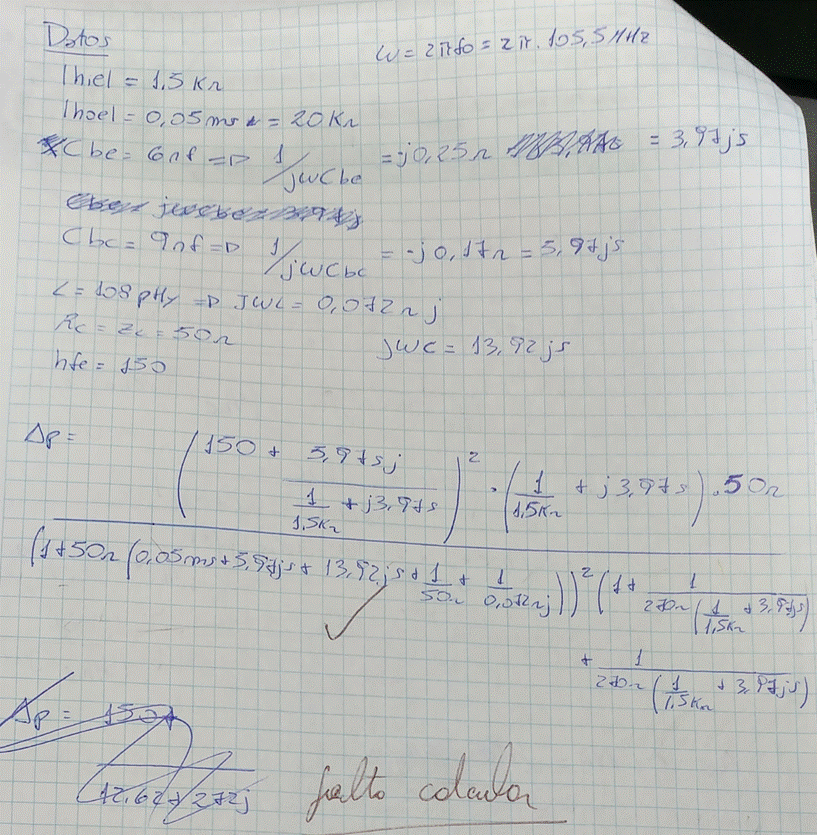 Datos
w = 2πfo = 2π.105,5 MHz
|hiel = 1,5 KΩ
|hoel = 0,05 ms = 20 KΩ
Cbe = 6nf => 1/jwCbe = -j0,25Ω = 3,97js
Cbc = 9nf => 1/jwCbc = -j0,17Ω = 5,97js
L = 108 pHy => JWL = 0,072Ω j
Rc = Zc = 50Ω
jwc = 13,92js
hfe = 150
Δp = (150 + 5,97sj / (1/1,5KΩ + j3,97s))² . (1/1,5KΩ + j3,97s) . 50Ω
(1+50Ω (0,05ms+5,97js + 13,92js + 1/50Ω + 1/0,072Ωj))² (1+ 1/270Ω(1/1,5KΩ + 3,97js)
+ 1/270Ω(1/1,5KΩ + 3,97js))
Δp = 150
falto calcular